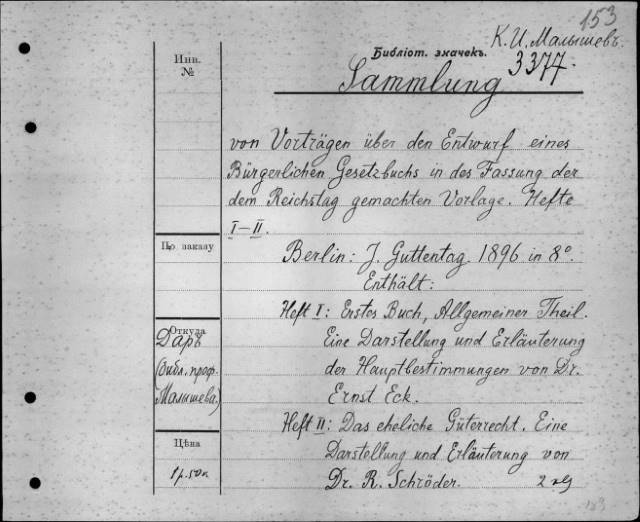 153
К. И. Малышевъ.
Библіот. значекъ.
3377.
Инв.
№
Sammlung
von Vorträgen über den Entwurf eines
Bürgerlichen Gesetzbuchs in des Fassung der
dem Reichstag gemachten Vorlage. Hefte
I–II.
По заказу
Berlin: J. Guttentag. 1896 in 8°.
Enthält:
Heft I: Erstes Buch, Allgemeiner Theil.
Откуда
Даръ
Eine Darstellung und Erläuterung
(библ. проф.
der Hauptbestimmungen von Dr.
Малышева.)
Ernst Eck.
Heft II: Das eheliche Güterrecht. Eine
Цѣна
Darstellung und Erläuterung von
1 р. 50 к
Dr. R. Schröder.